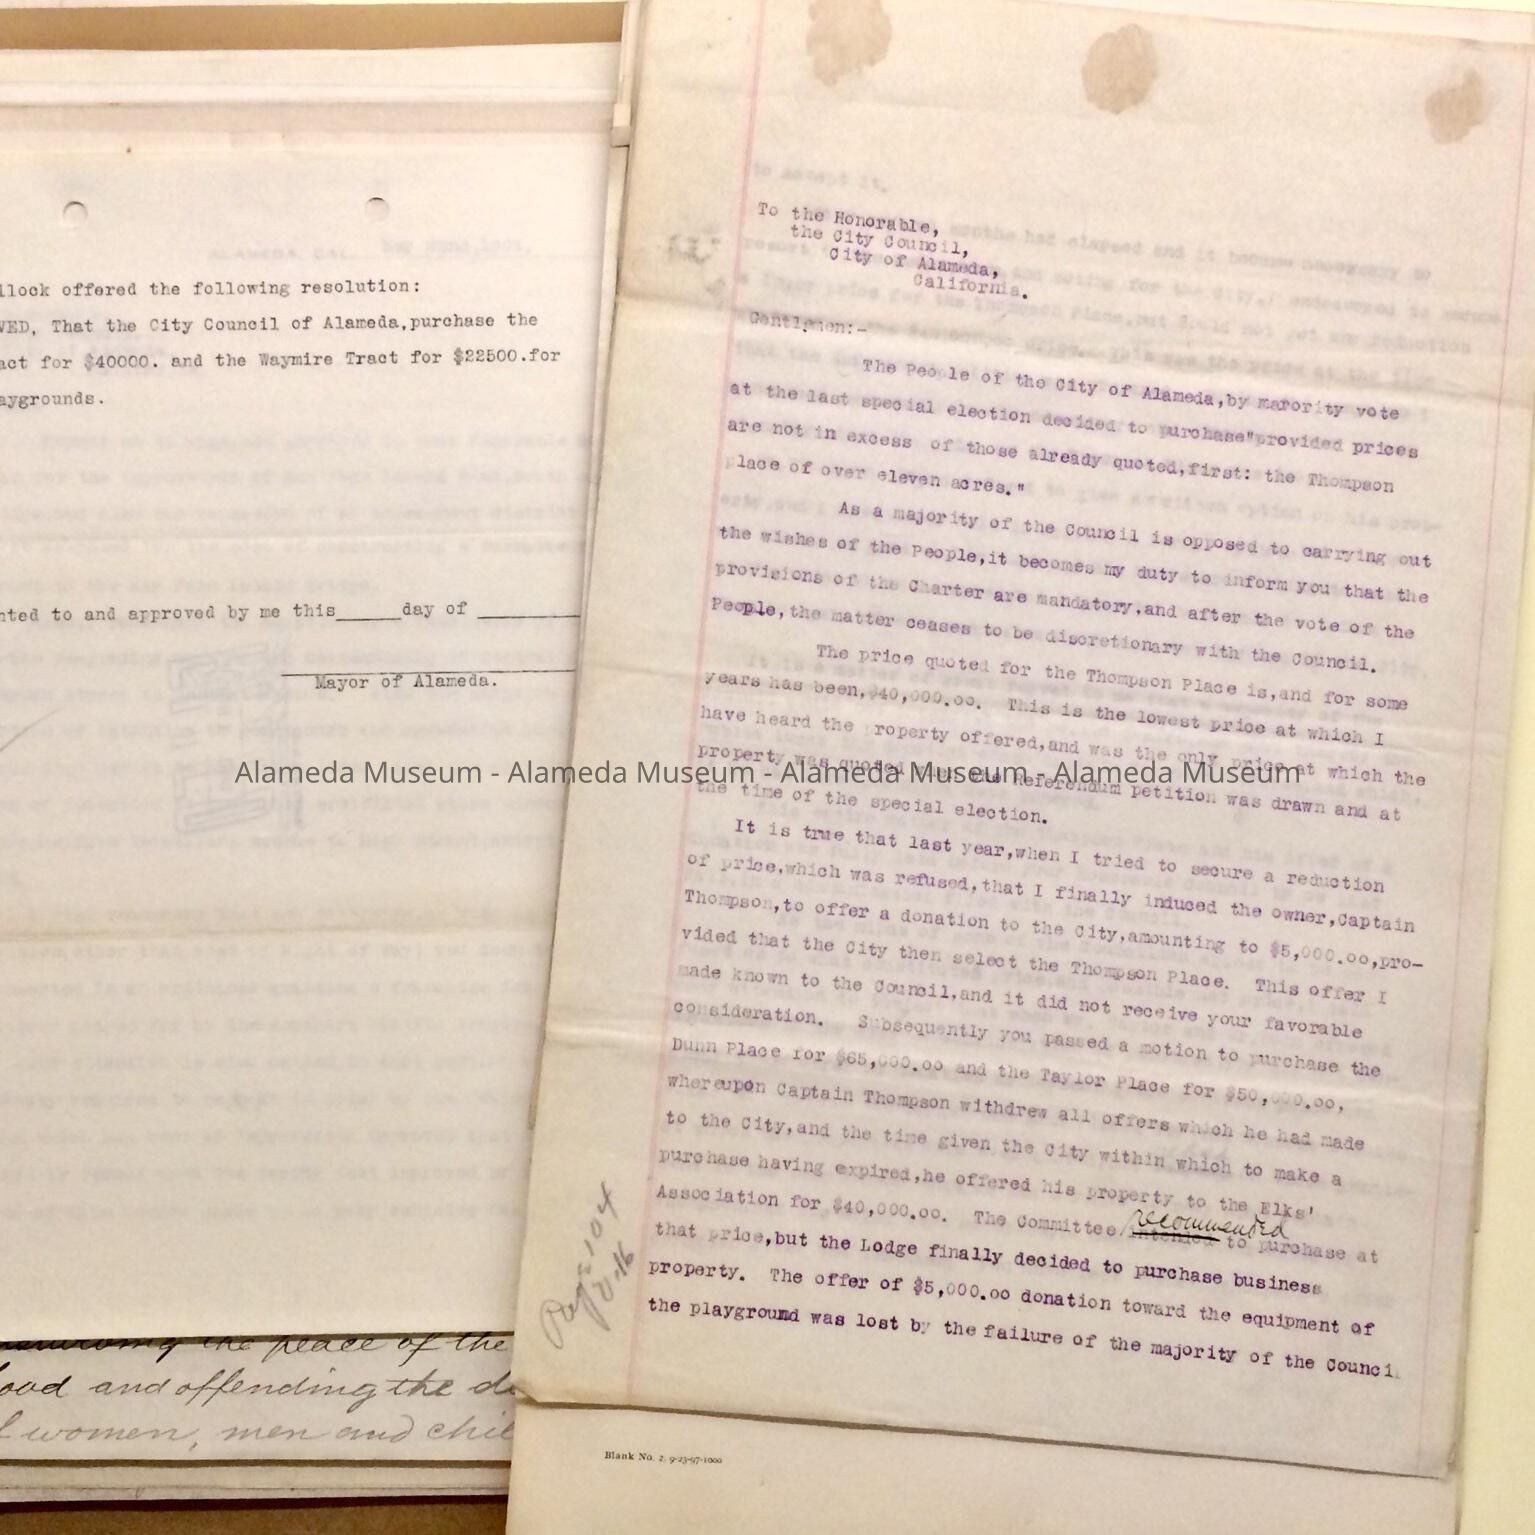 llock offered the following resolution:
VED, That the City Council of Alameda,purchase the
act for $40000. and the Waymire Tract for $22500.for
aygrounds.
nted to and approved by me this_____day of
Mayor of Alameda.
the peace of the
ood and offending the d
women, men and chil
To the Honorable,
the City Council,
City of Alameda,
California.
Gentlemen:-
The People of the City of Alameda,by marority vote
at the last special election decided to purchase"provided prices
are not in excess of those already quoted,first: the Thompson
place of over eleven acres."
As a majority of the Council is opposed to carrying out
the wishes of the People,it becomes my duty to inform you that the
provisions of the Charter are mandatory,and after the vote of the
People,the matter ceases to be discretionary with the Council.
The price quoted for the Thompson Place is,and for some
years has been,$40,000.oo. This is the lowest price at which I
have heard the roperty offered,and was the only price at which the
property was quoted when the Referendum petition was drawn and at
the time of the special election.
It is true that last year,when I tried to secure a reduction
of price,which was refused,that I finally induced the owner,Captain
Thompson,to offer a donation to the City,amounting to $5,000.oo,pro-
vided that the City then select the Thompson Place. This offer I
made known to the Council,and it did not receive your favorable
consideration. Subsequently you passed a motion to purchase the
Dunn Place for $65,000.oo and the Taylor Place for $50,000.oo,
whereupon Captain Thompson withdrew all offers which he had made
to the City,and the time given the City within which to make a
purchase having expired,he offered his property to the Elks'
Association for $40,000.oo. The Committee recommended intended to purchase at
that price,but the Lodge finally decided to purchase business
property. The offer of $5,000.oo donation toward the equipment of
the playground was lost by the failure of the majority of the Counci
Blank No. 2. 9-23-97-1000
Alameda Museum - Alameda Museum - Alameda Museum - Alameda Museum